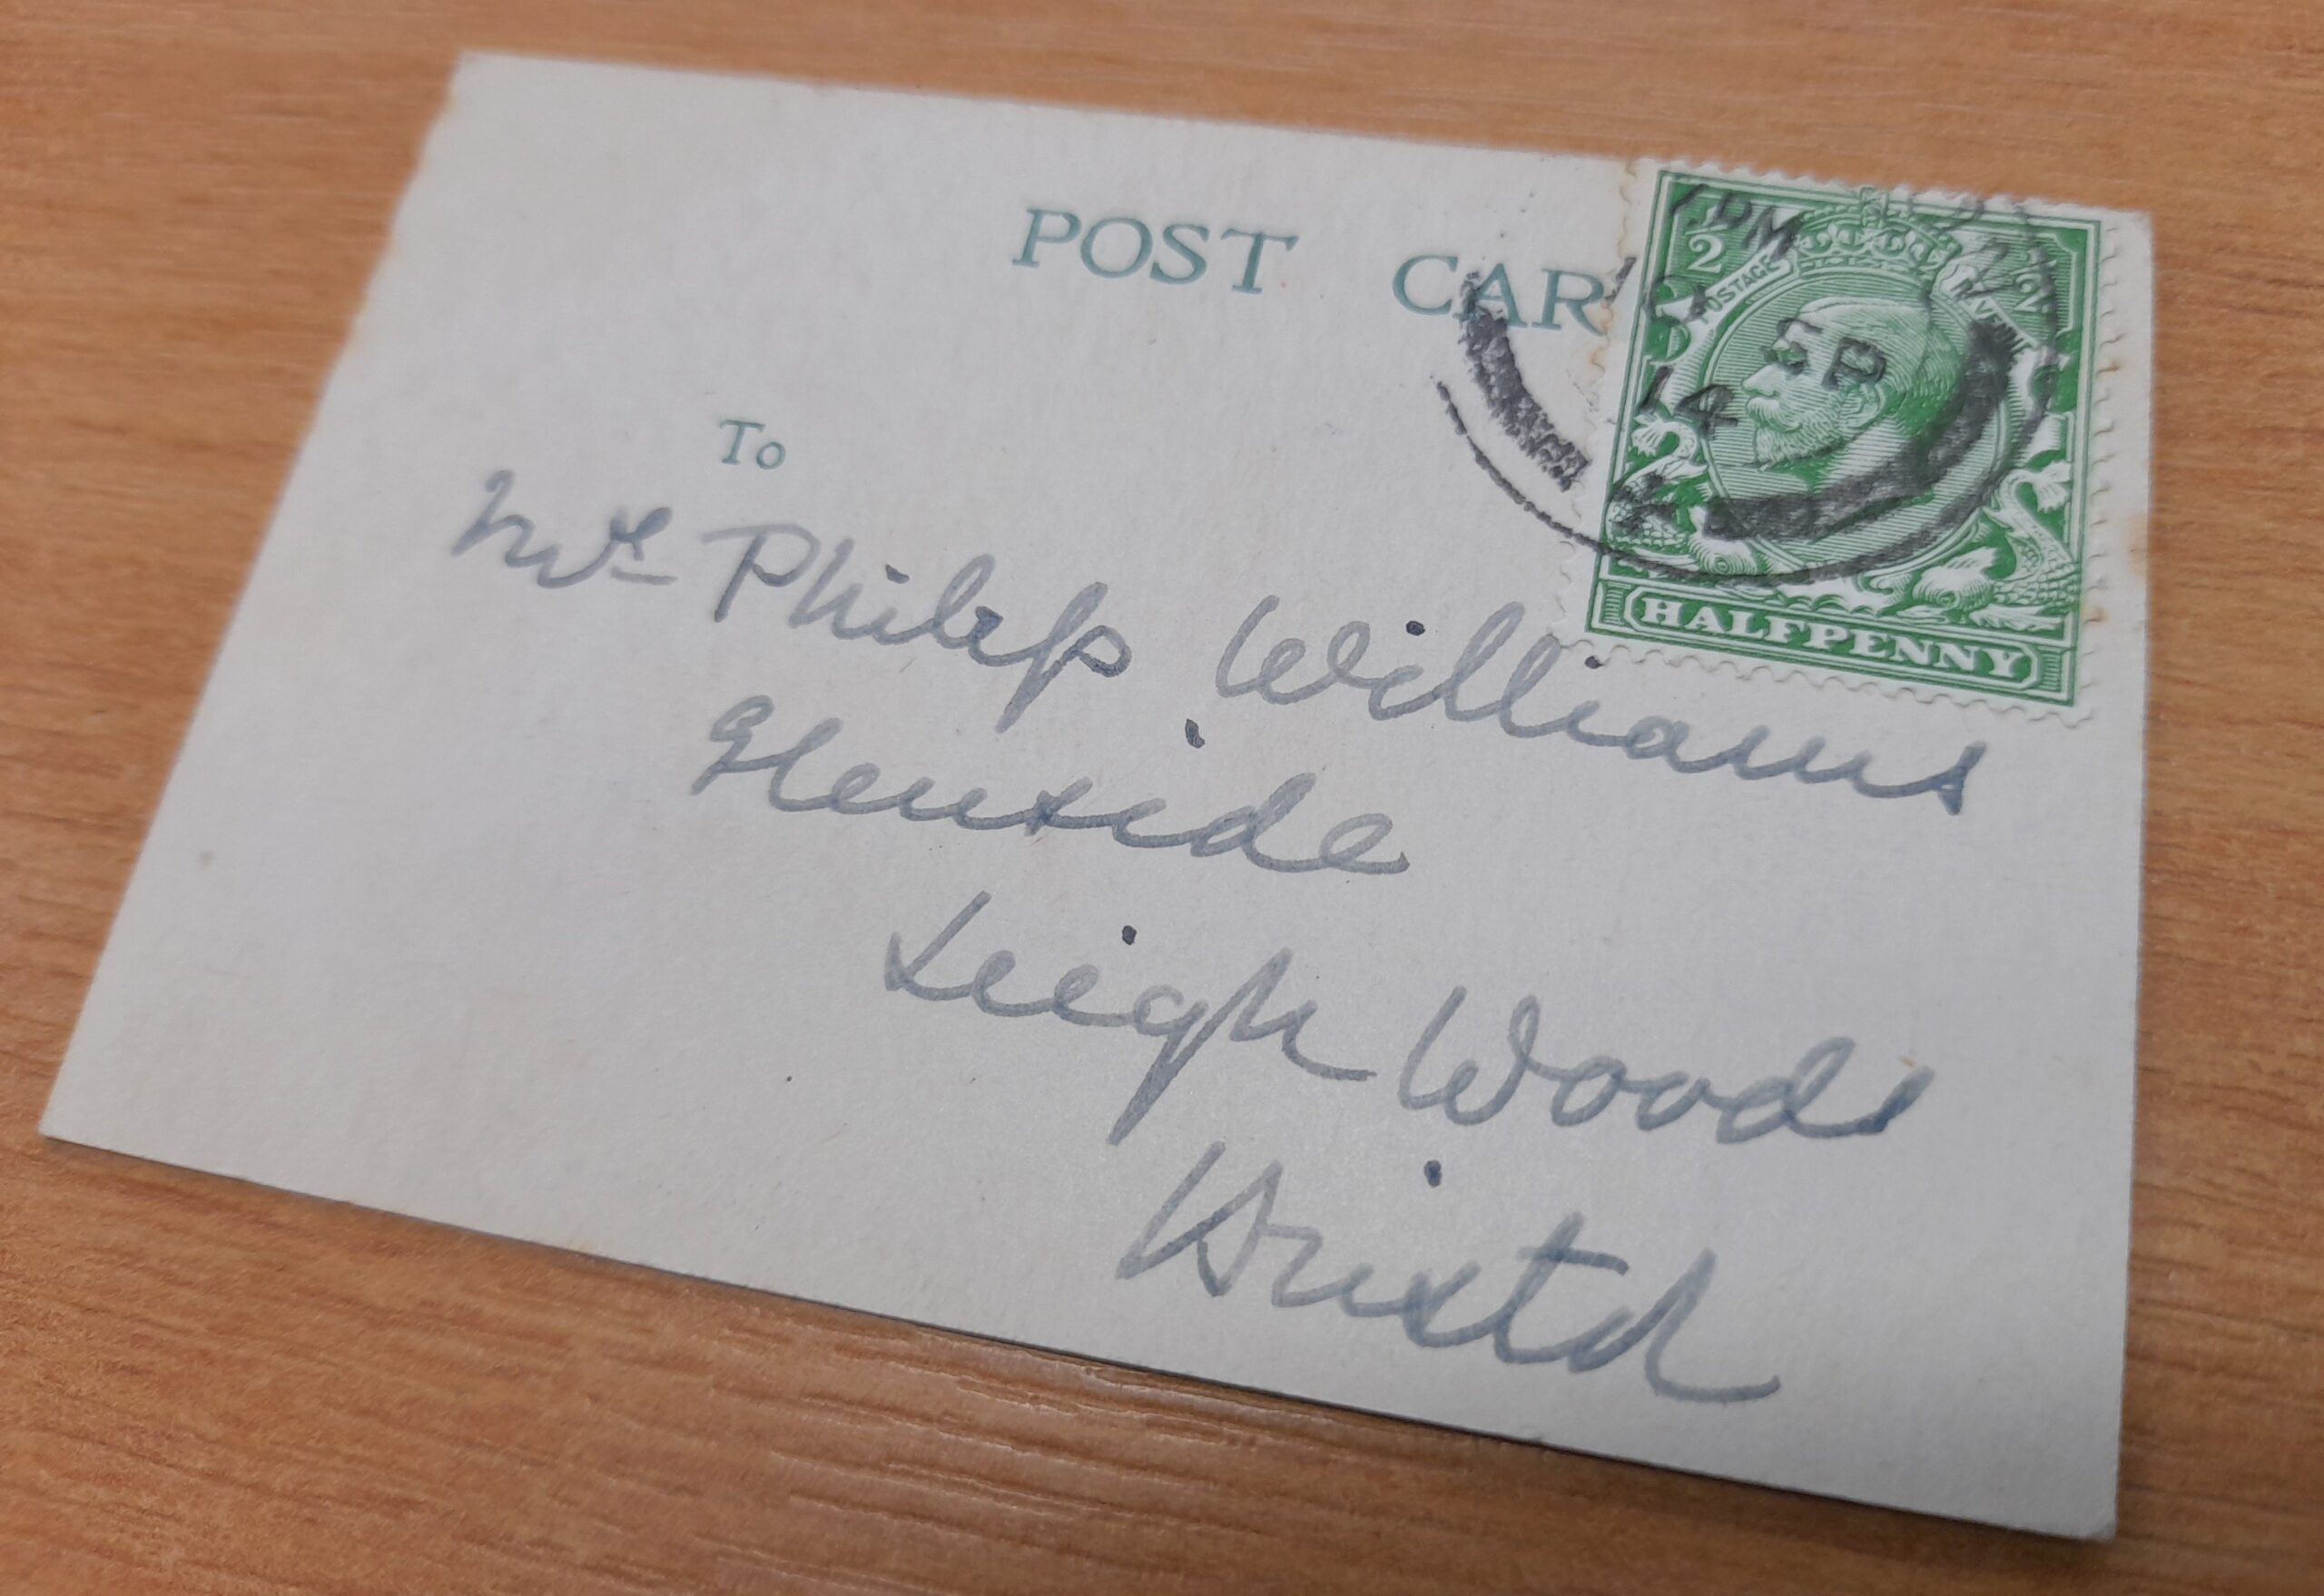 POST CAR
1/2 POSTAGE 1/2
PM
14
HALFPENNY
To
Mrs Philip Williams
Glenside
Leigh Woods
Bristol